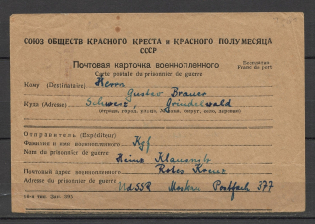 СОЮЗ ОБЩЕСТВ КРАСНОГО КРЕСТА и КРАСНОГО ПОЛУМЕСЯЦА
СССР
Почтовая карточка военнопленного
Carte postale du prisonnier de guerre
Бесплатно
Franc de port
Кому (Destinataire) Herrn
Gustav Brauer
Куда (Adresse) Schweiz, Grindelwald
(страна, город, улица, № дома, округ, село, деревня)
Отправитель (Expéditeur)
Фамилия и имя военнопленного Kgf
Nom du prisonnier de guerre
Heinz
Почтовый адрес военнопленного Rotes Kreuz
Adresse du prisonnier de guerre
UdSSR Moskau Postfach 377